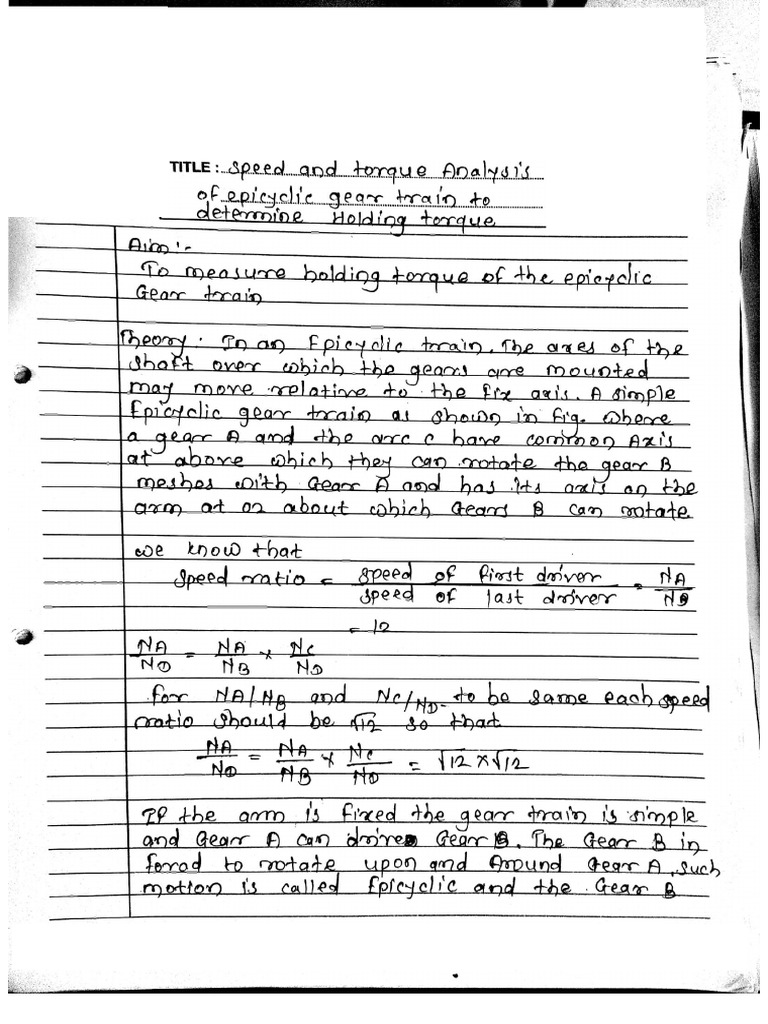 TITLE: Speed and torque Analysis
of epicyclic gear train to
determine Holding torque
Aim:-
To measure holding torque of the epicyclic
Gear train
Theory. In an Epicyclic train. The axes of the
shaft over which the gears are mounted
may move relative to the fix axis. A simple
Epicyclic gear train as shown in fig. where
a gear A and the arc c have common Axis
at above which they can rotate the gear B
meshes with Gear A and has its axis on the
arm at or about which Gears B can rotate
we know that
Speed ratio = speed of first driver / speed of last driver = NA/ND
= 12
NA/ND = NA/NB × NC/ND
for NA/NB and NC/ND to be same each speed
ratio should be √12 so that
NA/ND = NA/NB × NC/ND = √12 × √12
If the arm is fixed the gear train is simple
and Gear A can drive Gear B. The Gear B in
forad to rotate upon and Around Gear A, such
motion is called Epicyclic and the Gear B